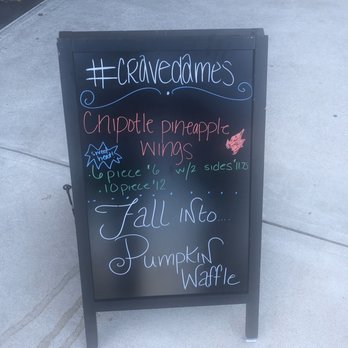 #cravedames
Chipotle pineapple
wings
sweet heat!
6 piece $6 w/2 sides
10 piece $12
Fall into...
Pumpkin
Waffle